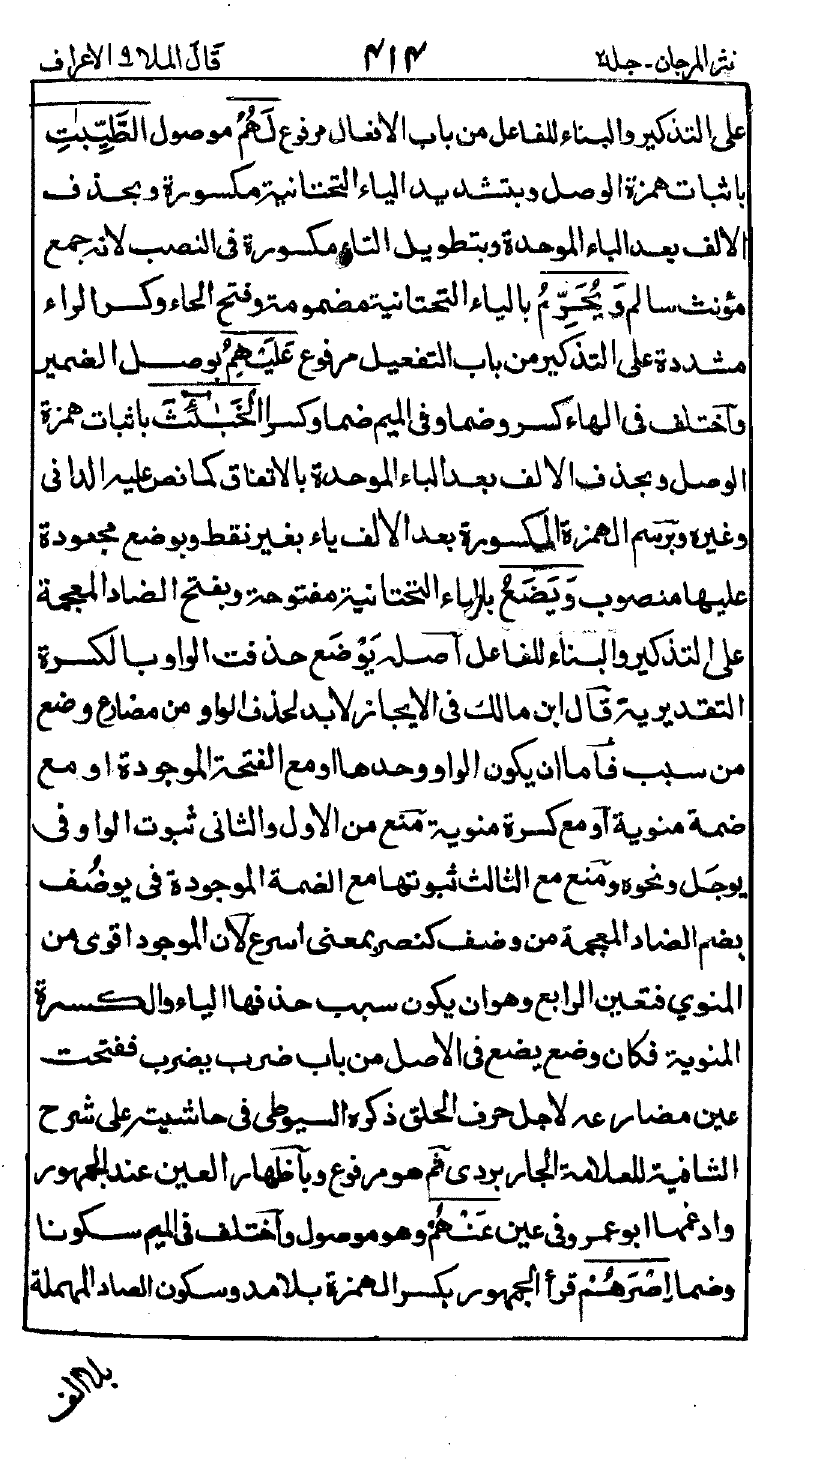 نثر المرجان - جلد ٢ ٤١٤ قال الملا ٩ الاعراف
على التذكير والبناء للفاعل من باب الافعال مرفوع لَهُمُ موصول الطَّيِّبٰتِ
باثبات همزة الوصل وبتشديد الياء التحتانية مكسورة وبحذف
الالف بعد الباء الموحدة وبتطويل التاء مكسورة فى النصب لانه جمع
مؤنث سالم وَيُحَرِّمُ بالياء التحتانية مضمومة وفتح الحاء وكسر الراء
مشددة على التذكير من باب التفعيل مرفوع عَلَيْهِمُ بوصل الضمير
واختلف فى الهاء كسر وضما وفى الميم ضما وكسرا الْخَبٰۤئِثَ باثبات همزة
الوصل وبحذف الالف بعد الباء الموحدة بالاتفاق كما نص عليه الدانى
وغيره وبرسم الهمزة المكسورة بعد الالف ياء بغير نقط وبوضع مجعودة
عليها منصوب وَيَضَعُ بالياء التحتانية مفتوحة وبفتح الضاد المعجمة
على التذكير والبناء للفاعل اصله يَوْضَع حذفت الواو بالكسرة
التقديرية قال ابن مالك فى الايجاز لابد لحذف الواو من مضارع وضع
من سبب فاما ان يكون الواو وحدها او مع الفتحة الموجودة او مع
ضمة منوية او مع كسرة منوية منع من الاول والثانى ثبوت الواو فى
يوجل ونحوه ومنع مع الثالث ثبوتها مع الضمة الموجودة فى يوضُف
بضم الضاد المعجمة من وضف كنصر بمعنى اسرع لان الموجود اقوى من
المنوي فتعين الرابع وهو ان يكون سبب حذفها الياء والكسرة
المنوية فكان وضع يضع فى الاصل من باب ضرب يضرب ففتحت
عين مضارعه لاجل حرف الحلق ذكره السيوطى فى حاشيته على شرح
الشافية للعلامة الجاربردى ثم هو مرفوع وباظهار العين عند الجمهور
وادغمها ابو عمرو فى عين عَنْهُمْ وهو موصول واختلف فى الميم سكونا
وضما اِصْرَهُمْ قرأ الجمهور بكسر الهمزة بلا مد وسكون الصاد المهملة
بلا الف